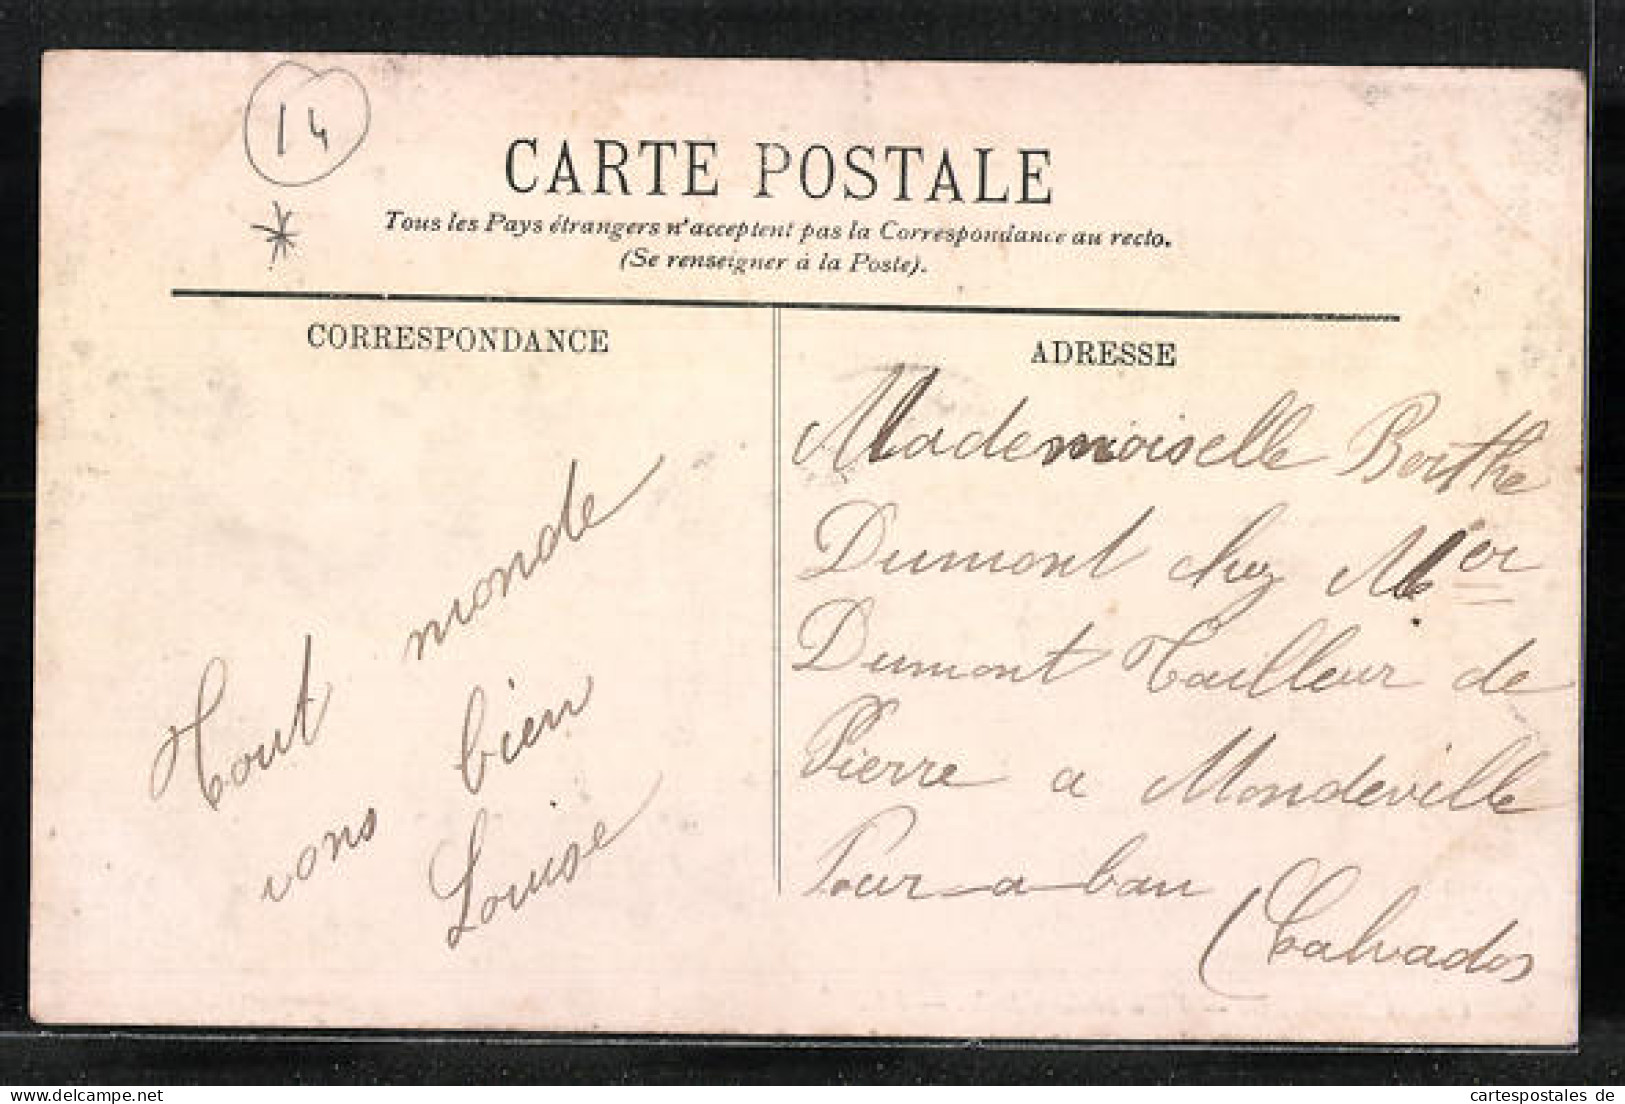 14
CARTE POSTALE
Tous les Pays étrangers n'acceptent pas la Correspondance au recto.
(Se renseigner à la Poste).
CORRESPONDANCE
Tout monde
vons bien
Louise
ADRESSE
Mademoiselle Berthe
Dumont chez Mer
Dumont Tailleur de
Pierre a Mondeville
Pour-a-bau
(Calvados
cartespostales de